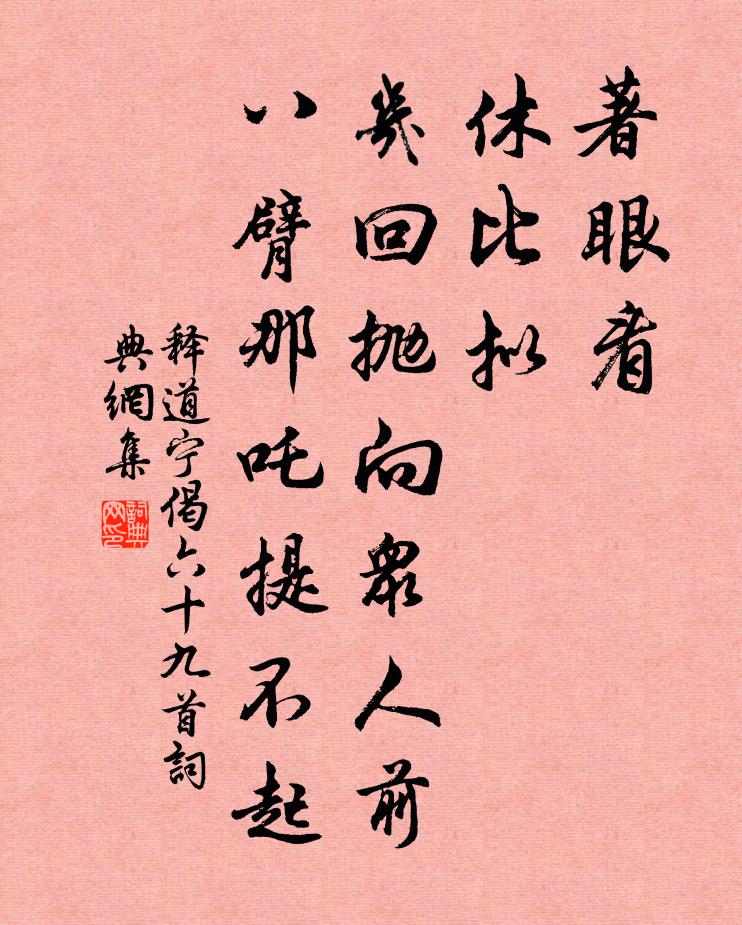 著眼看
休比拟
几回抛向眾人前
八臂那吒提不起
释道宁偈六十九首詞
典網集
詞典网印